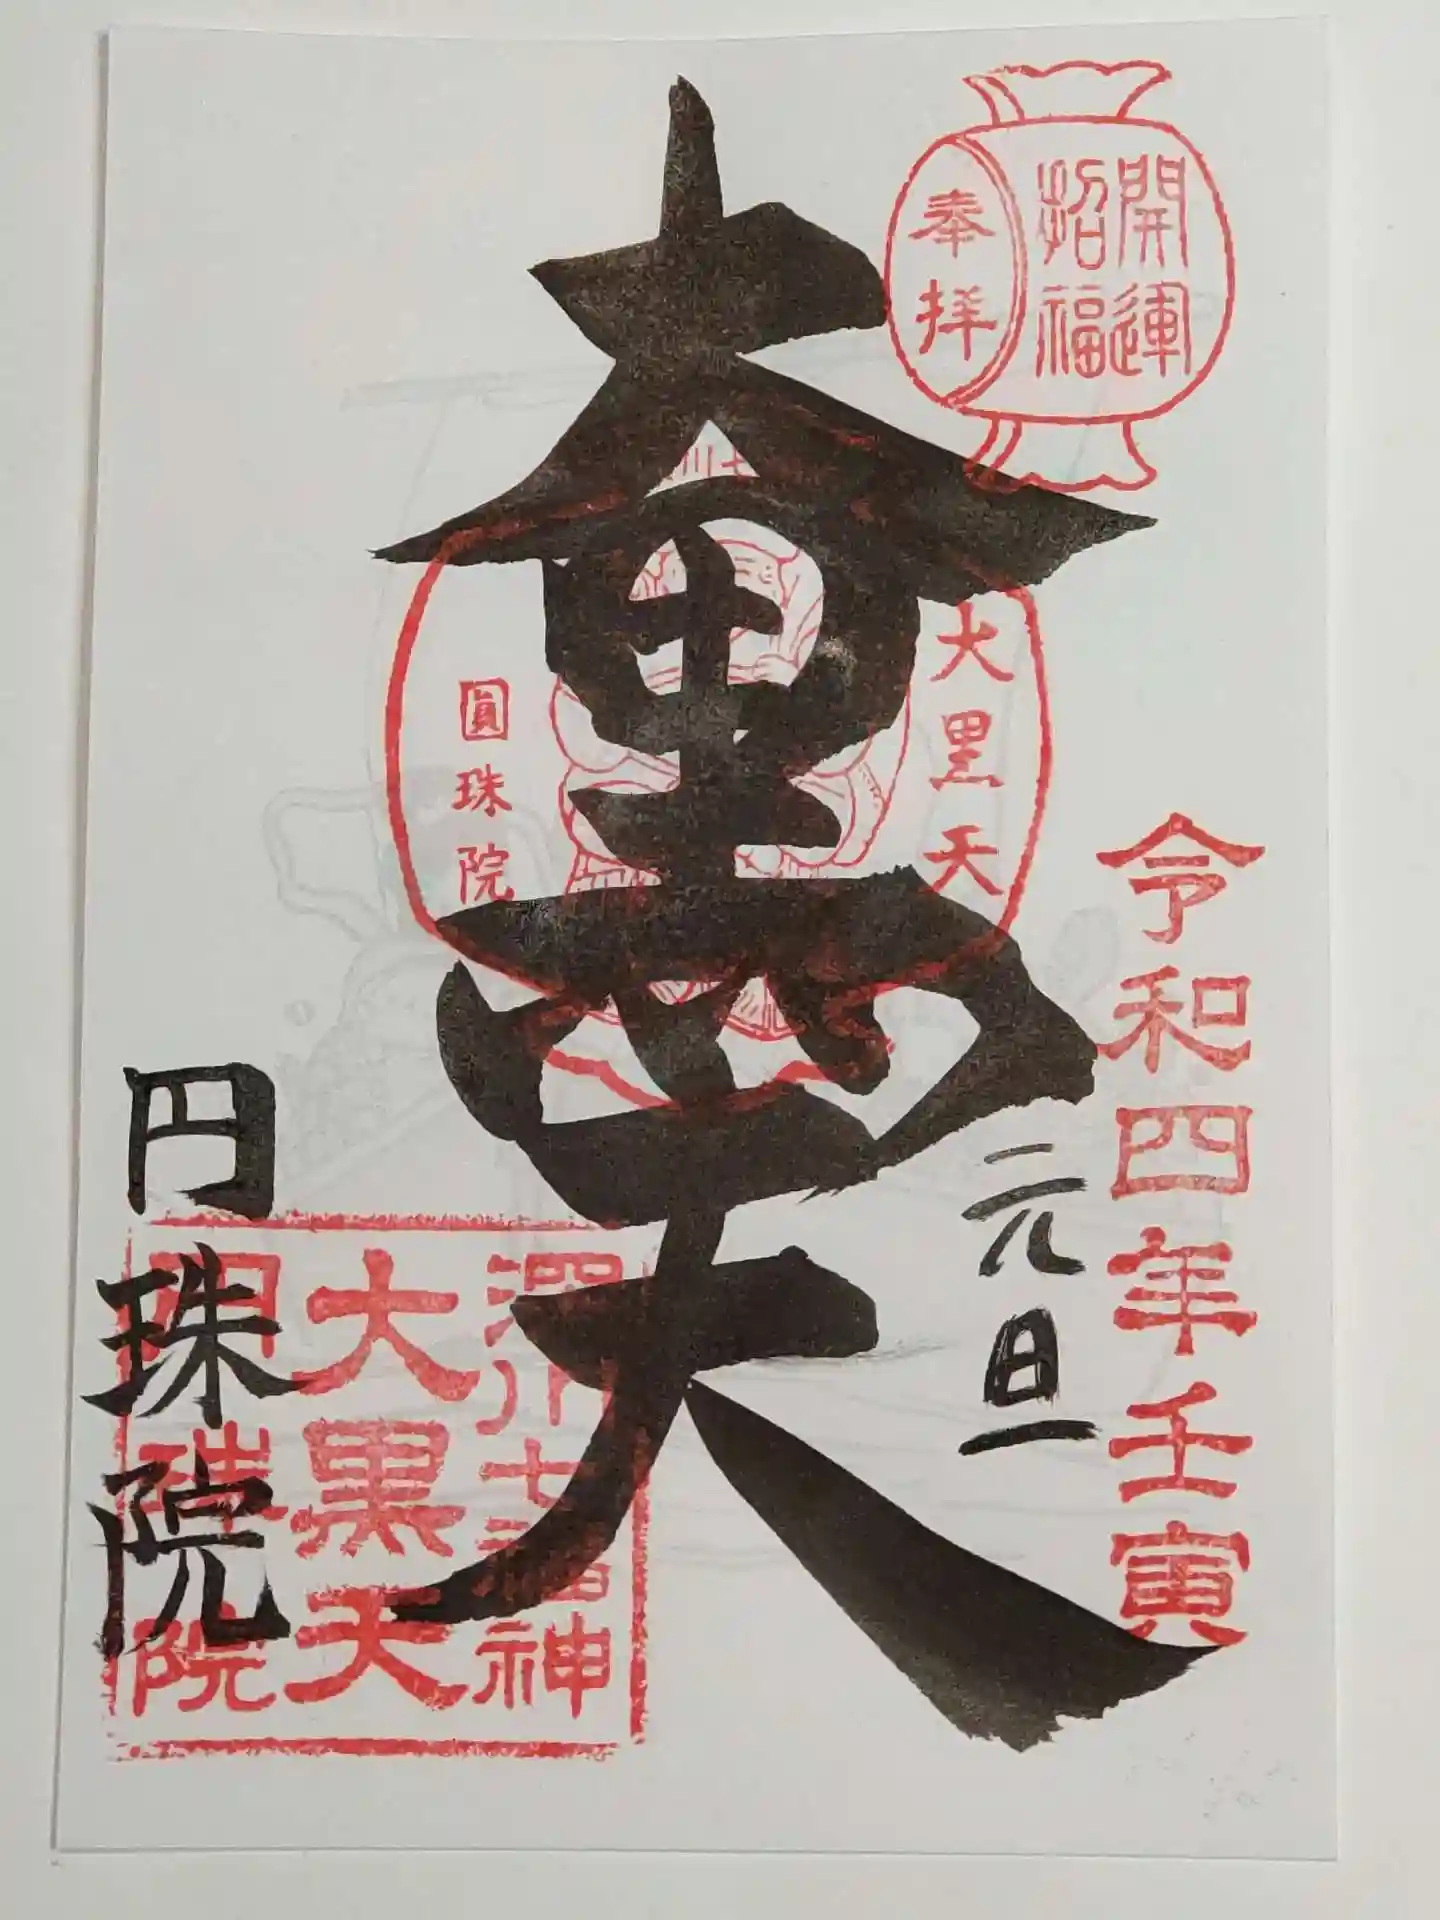 開運
招福
奉拝
令和四年壬寅
元旦
大黒天
大黒天
圓珠院
深川七福神
大黒天
円珠院